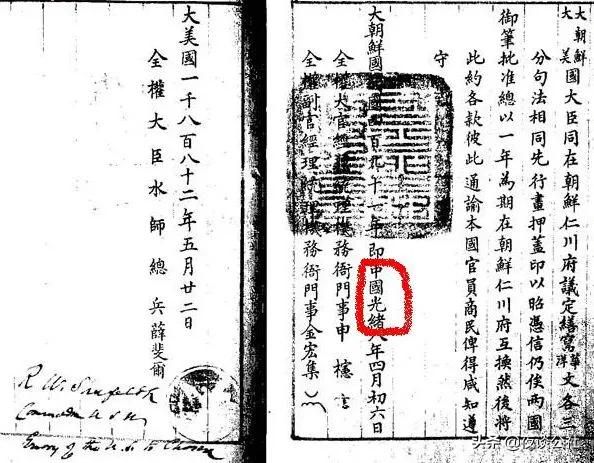 大朝鮮大美國大臣同在朝鮮仁川府議定繕寫華洋文各三
分句法相同先行畫押蓋印以昭憑信仍俟兩國
御筆批准總以一年為期在朝鮮仁川府互換然後將
此約各款彼此通諭本國官員商民俾得咸知遵
守
大朝鮮國國四百九十一年即中國光緒八年四月初六日
全權大官經理統理機務衙門事申櫶
全權副官經理統理機務衙門事金宏集
大美國一千八百八十二年五月廿二日
全權大臣水師總兵薛斐爾
R. W. Shufeldt
Commodore U.S.N.
Envoy of the U.S. to Chosen
头条